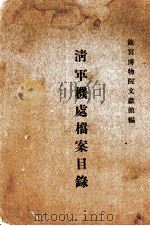 故宮博物院文獻館編
清軍機處檔案目錄